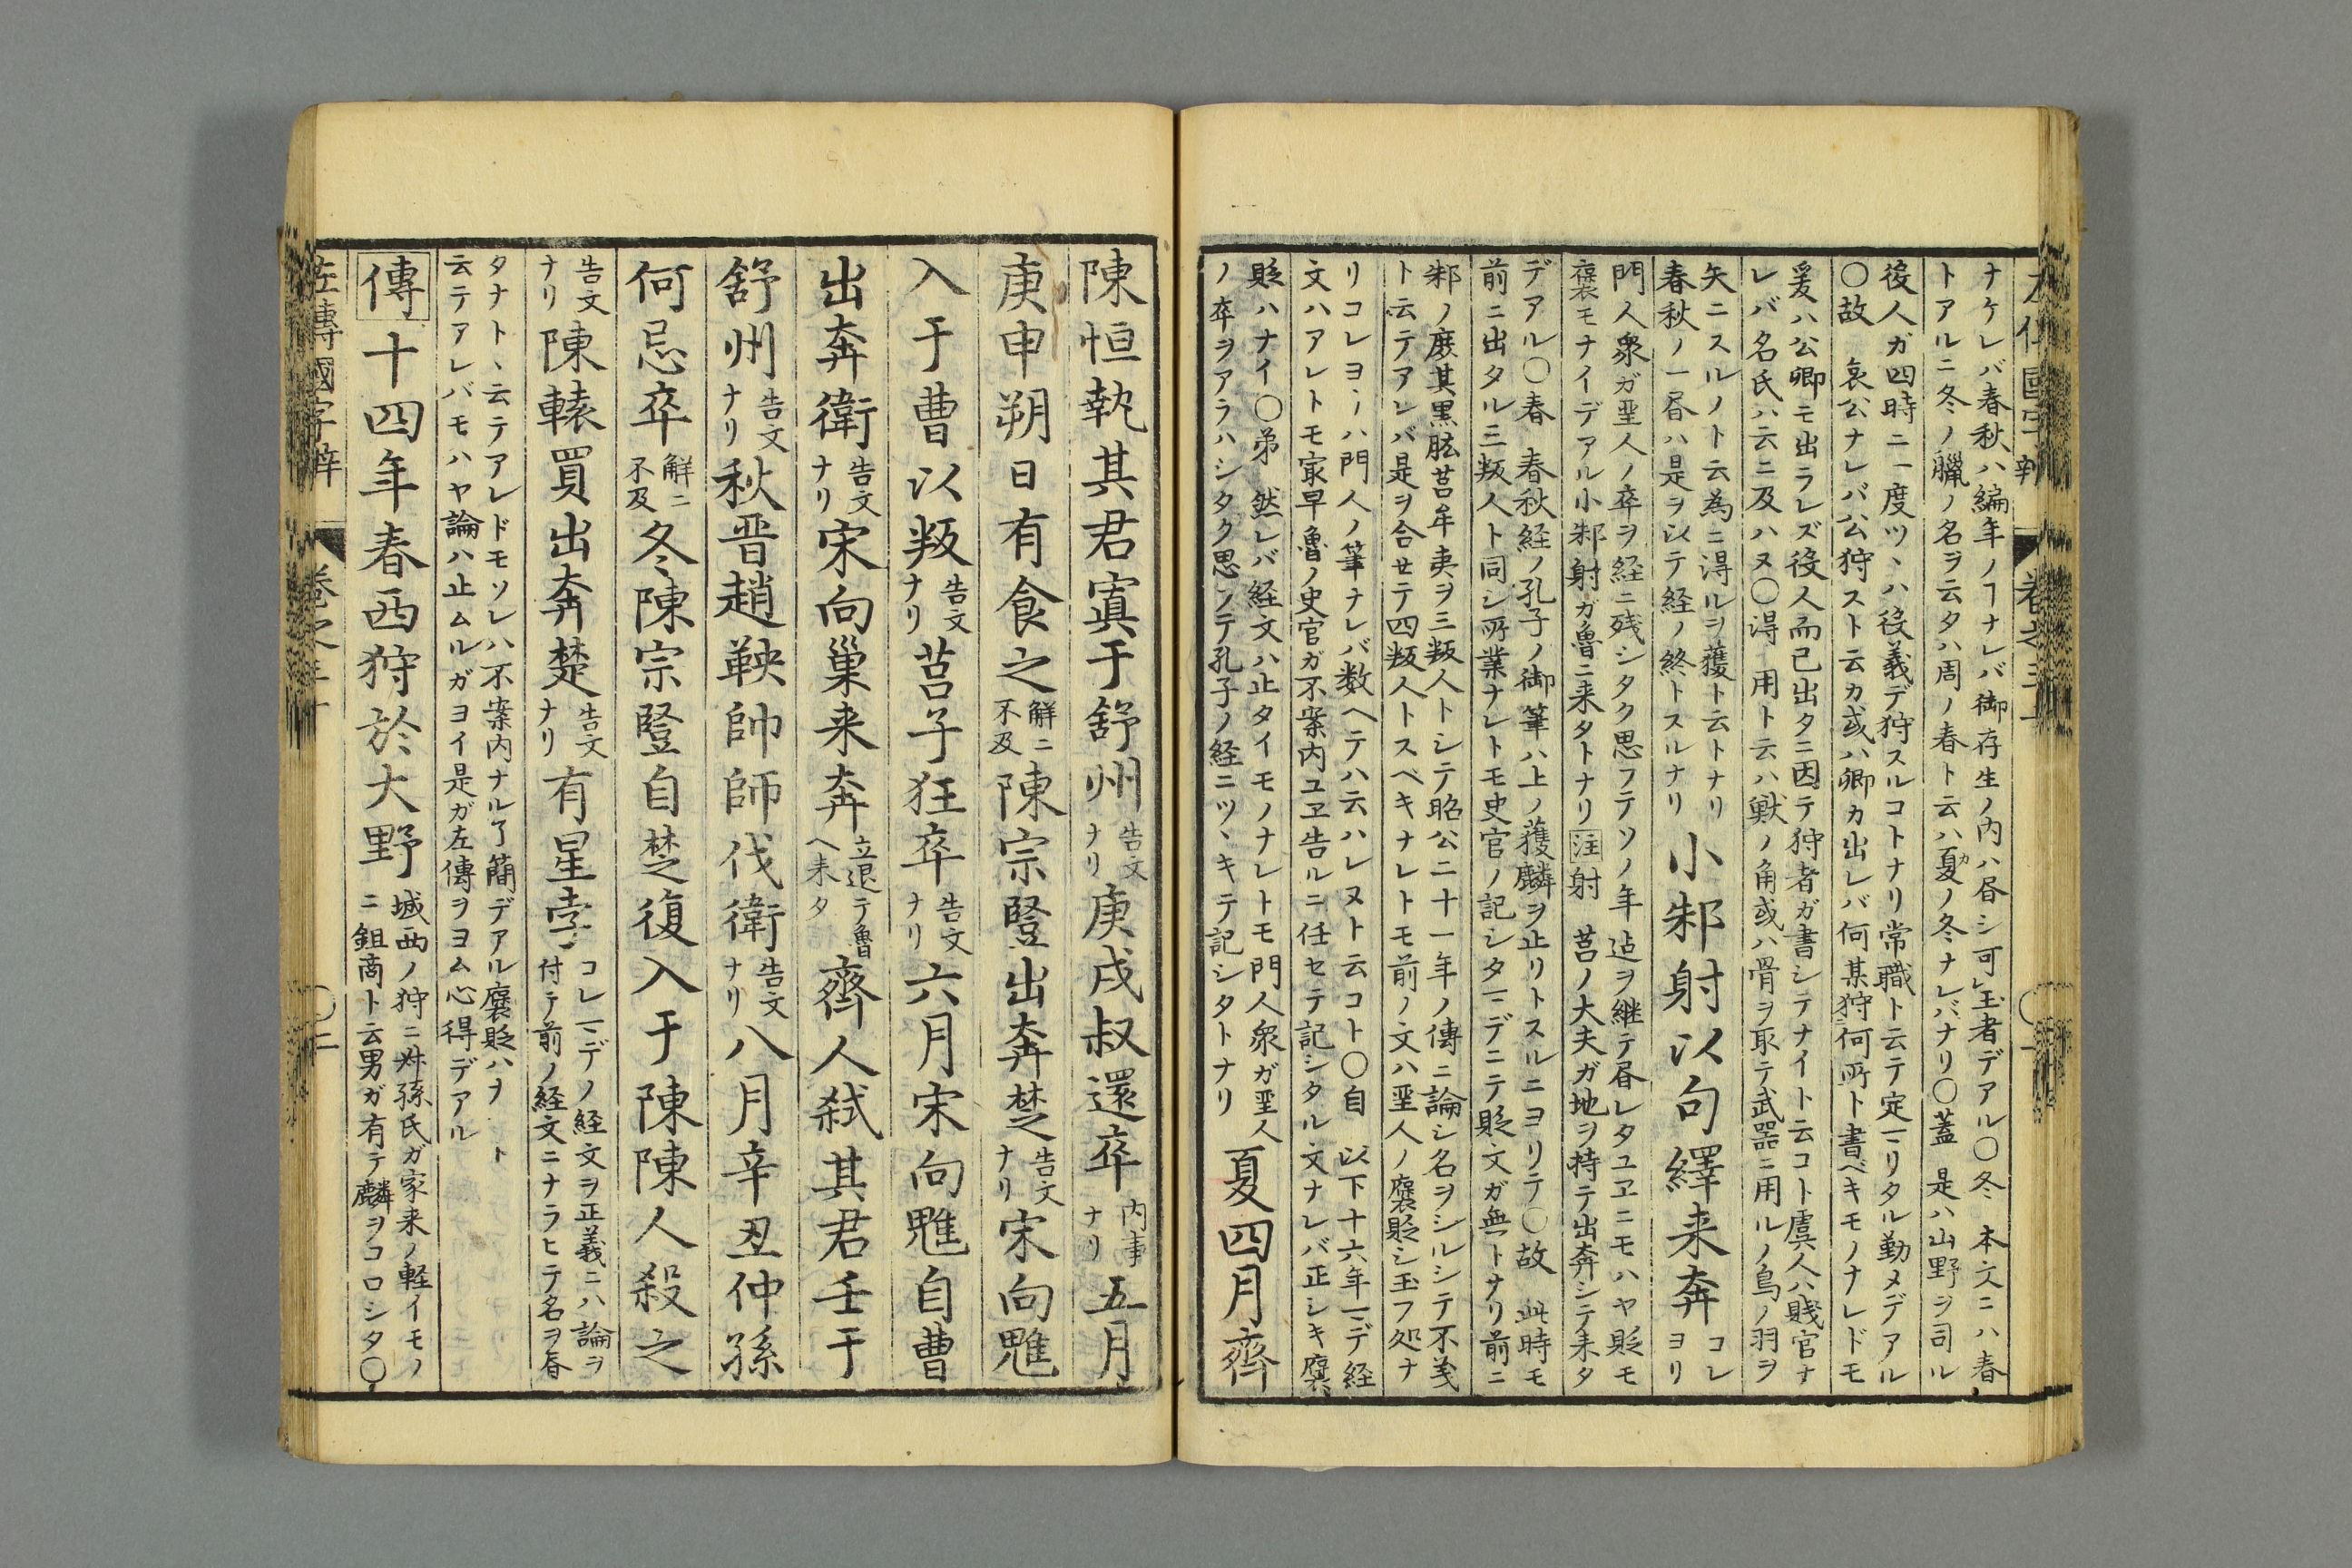 ナケレバ春秋ハ編年ノヿナレバ御存生ノ内ハ㫺シ可レ玉者デアル〇冬 本文ニハ春
トアルニ冬ノ臘ノ名ヲ云タハ周ノ春ト云ハ夏ノ冬ナレバナリ〇蓋 是ハ山野ヲ司ル
役人ガ四時ニ一度ツヽハ役義デ狩スルコトナリ常職ト云テ定マリタル勤メデアル
〇故 哀公ナレバ公狩スト云カ或ハ卿カ出レバ何某狩二何所ト書ベキモノナレドモ
爰ハ公卿モ出ラレズ役人而已出タニ因テ狩者ガ書シテナイト云コト虞人ハ賤官ナ
レバ名氏ハ云ニ及ハヌ〇得 用ト云ハ獣ノ角或ハ骨ヲ取テ武器ニ用ルノ鳥ノ羽ヲ
矢ニスルノト云為ニ得ルヲ獲ト云トナリ
春秋ノ一㫺ハ是ヲ以テ経ノ終トスルナリ
小邾射以句繹来奔
コレ
ヨリ
門人衆ガ聖人ノ卒ヲ経ニ残シタク思フテソノ年迠ヲ継テ㫺レタユヱニモハヤ貶モ
褒モナイデアル小邾射ガ魯ニ来タトナリ 注 射 莒ノ大夫ガ地ヲ持テ出奔シテ来タ
デアル〇春 春秋経ノ孔子ノ御筆ハ上ノ獲麟ヲ止リトスルニヨリテ〇故 此時モ
前ニ出タル三叛人ト同シ所業ナレトモ史官ノ記シタマデニテ貶文ガ無トナリ前ニ
邾ノ庶其黒肱莒牟夷ヲ三叛人トシテ昭公二十一年ノ傳ニ論シ名ヲシルシテ不義
ト云テアレバ是ヲ合セテ四叛人トスベキナレトモ前ノ文ハ聖人ノ褒貶シ玉フ処ナ
リコレヨリハ門人ノ筆ナレバ数ヘテハ云ハレヌト云コト〇自 以下十六年マデ経
文ハアレトモ寂早魯ノ史官ガ不案内ユヱ告ルニ任セテ記シタル文ナレバ正シキ褒
貶ハナイ〇弟 然レバ経文ハ止タイモノナレトモ門人衆ガ聖人
ノ卒ヲアラハシタク思フテ孔子ノ経ニツヽキテ記シタトナリ
夏四月齊
陳恒執其君寘于舒州告文ナリ庚戌叔還卒内事ナリ五月
庚申朔日有食之解ニ不及陳宗豎出奔楚告文ナリ宋向魋
入于曹以叛告文ナリ莒子狂卒告文ナリ六月宋向魋自曹
出奔衛告文ナリ宋向巢来奔立退テ魯へ来タ齊人弑其君壬于
舒州告文ナリ秋晋趙鞅帥師伐衛告文ナリ八月辛丑仲孫
何忌卒解ニ不及冬陳宗豎自楚復入于陳陳人殺之
告文ナリ陳轅買出奔楚告文ナリ有星孛コレマデノ経文ヲ正義ニハ論ヲ
付テ前ノ経文ニナラヒテ名ヲ㫺
タナトヽ云テアレドモソレハ不案内ナル了簡デアル褒貶ハヲ ト
云テアレバモハヤ論ハ止ムルガヨイ是ガ左傳ヲヨム心得デアル
傳十四年春西狩於大野城西ノ狩ニ叔孫氏ガ家来ノ軽イモノ
ニ鉏商ト云男ガ有テ麟ヲコロシタ〇
左傳國字辯 巻之三十